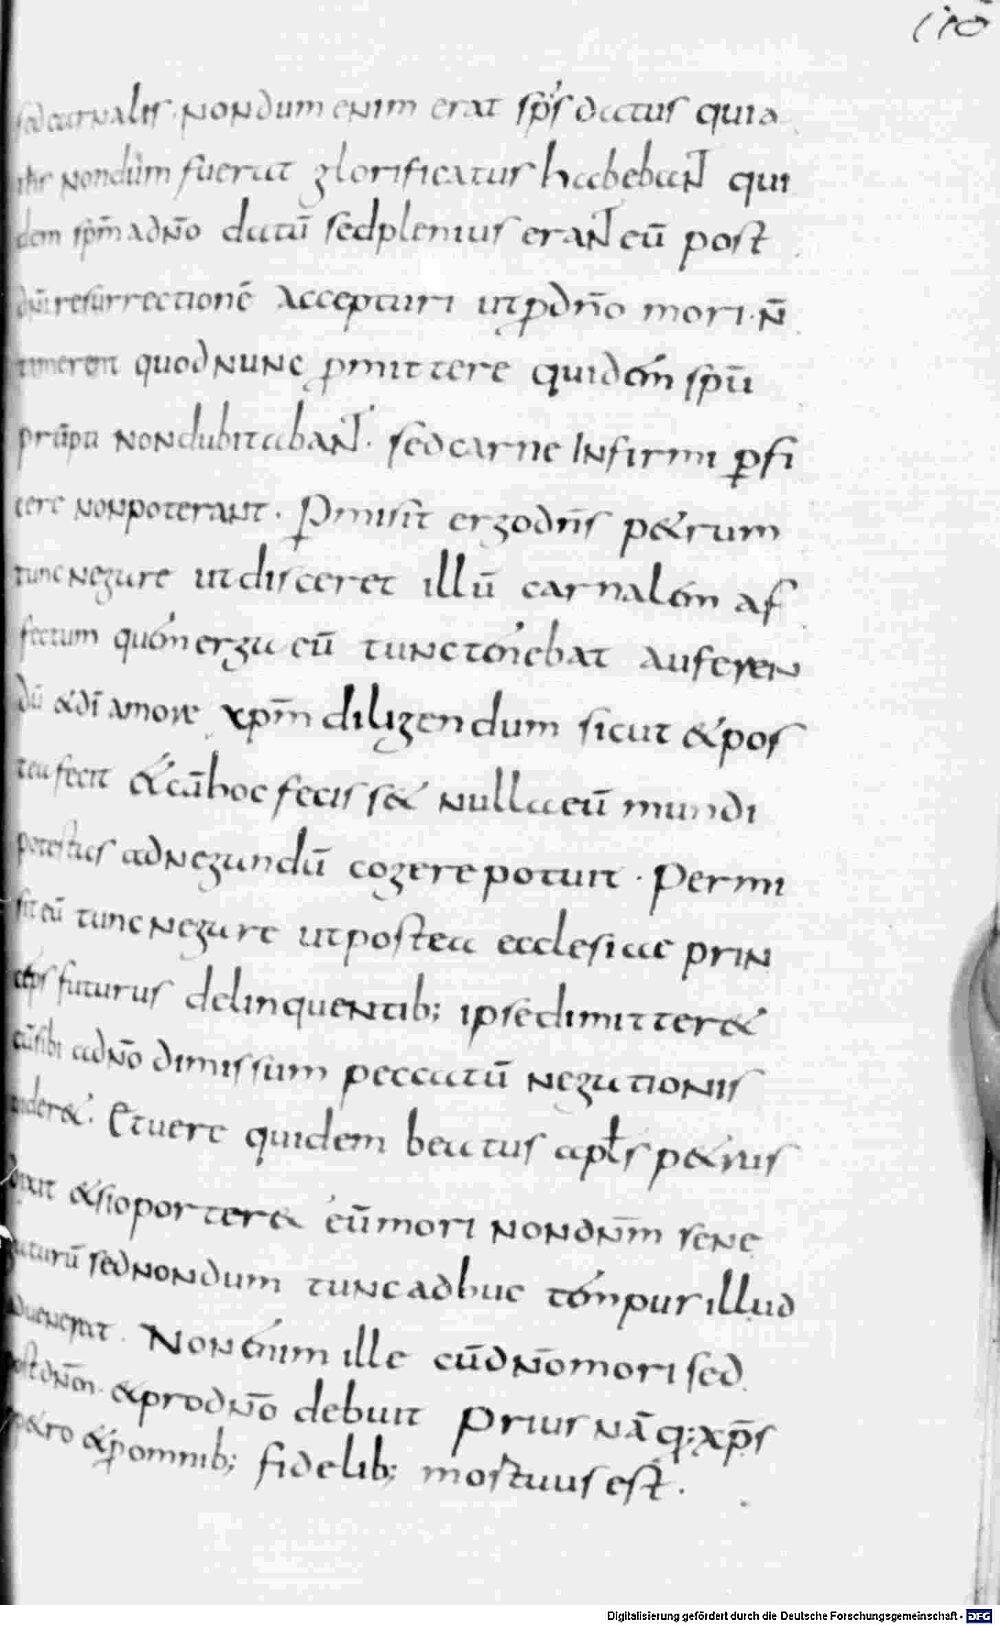 110
sed carnalis. Nondum enim erat sp̄s datus quia
ih̄s nondum fuerat glorificatus habebant qui
dem sp̄m a dn̄o datū sed plenius erant eū post
dn̄i resurrectionē accepturi ut p̱ dn̄o mori. n̄
timerent quod nunc p̱mittere quidem spū
prūptu non dubitabant. sed carne infirmi p̱fi
cere non poterant. P̱misit ergo dn̄s petrum
tunc negare ut disceret illū carnalem af
fectum quem erga eū tunc tenebat auferen
dū & dī amore xp̄m diligendum sicut & pos
tea fecit & cā hoc fecisset nulla eū mundi
potestas ad negandū cogere potuit. Permi
sit eū tunc negare ut postea ecclesiae prin
ceps futurus delinquentib; ipse dimitteret
cū sibi a dn̄o dimissum peccatū negationis
uideret. Et uere quidem beatus apl̄s petrus
dixit & si oporteret eū mori non dn̄m se ne
gaturū sed nondum tunc adhuc tempus illud
aduenerat. Non enim ille cū dn̄o mori sed
post dn̄m. & pro dn̄o debuit prius nāq; xp̄s
petro & p̱ omnib; fidelib; mortuus est.
Digitalisierung gefördert durch die Deutsche Forschungsgemeinschaft - DFG